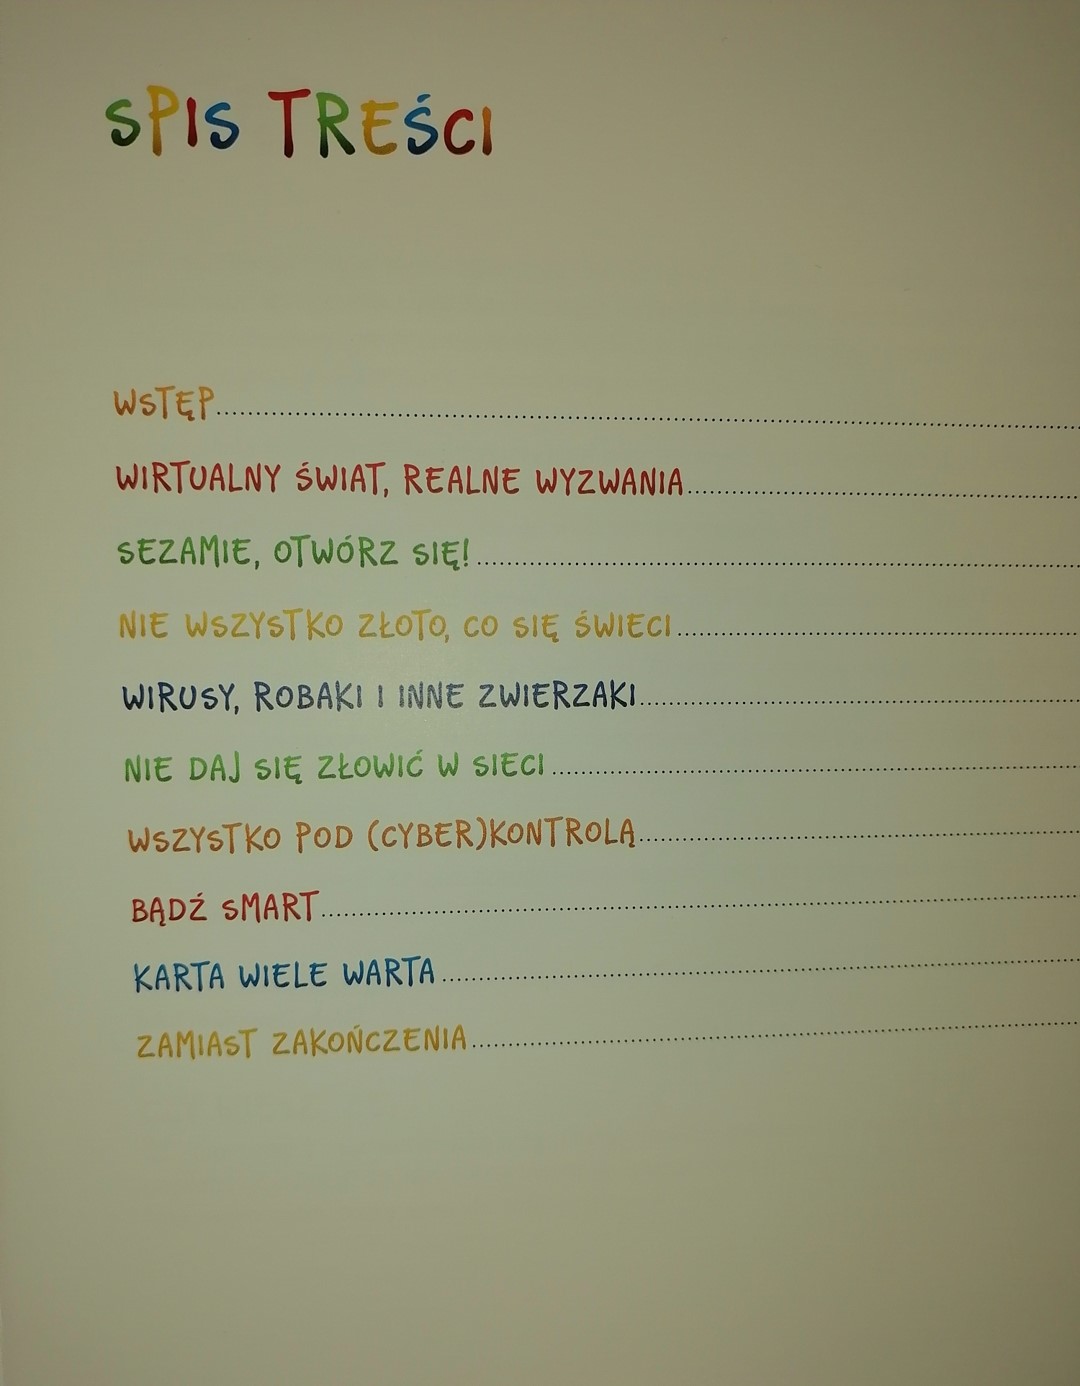 SPIS TREŚCI
WSTĘP
WIRTUALNY ŚWIAT, REALNE WYZWANIA
SEZAMIE, OTWÓRZ SIĘ!
NIE WSZYSTKO ZŁOTO, CO SIĘ ŚWIECI
WIRUSY, ROBAKI I INNE ZWIERZAKI
NIE DAJ SIĘ ZŁOWIĆ W SIECI
WSZYSTKO POD (CYBER)KONTROLĄ
BĄDŹ SMART
KARTA WIELE WARTA
ZAMIAST ZAKOŃCZENIA